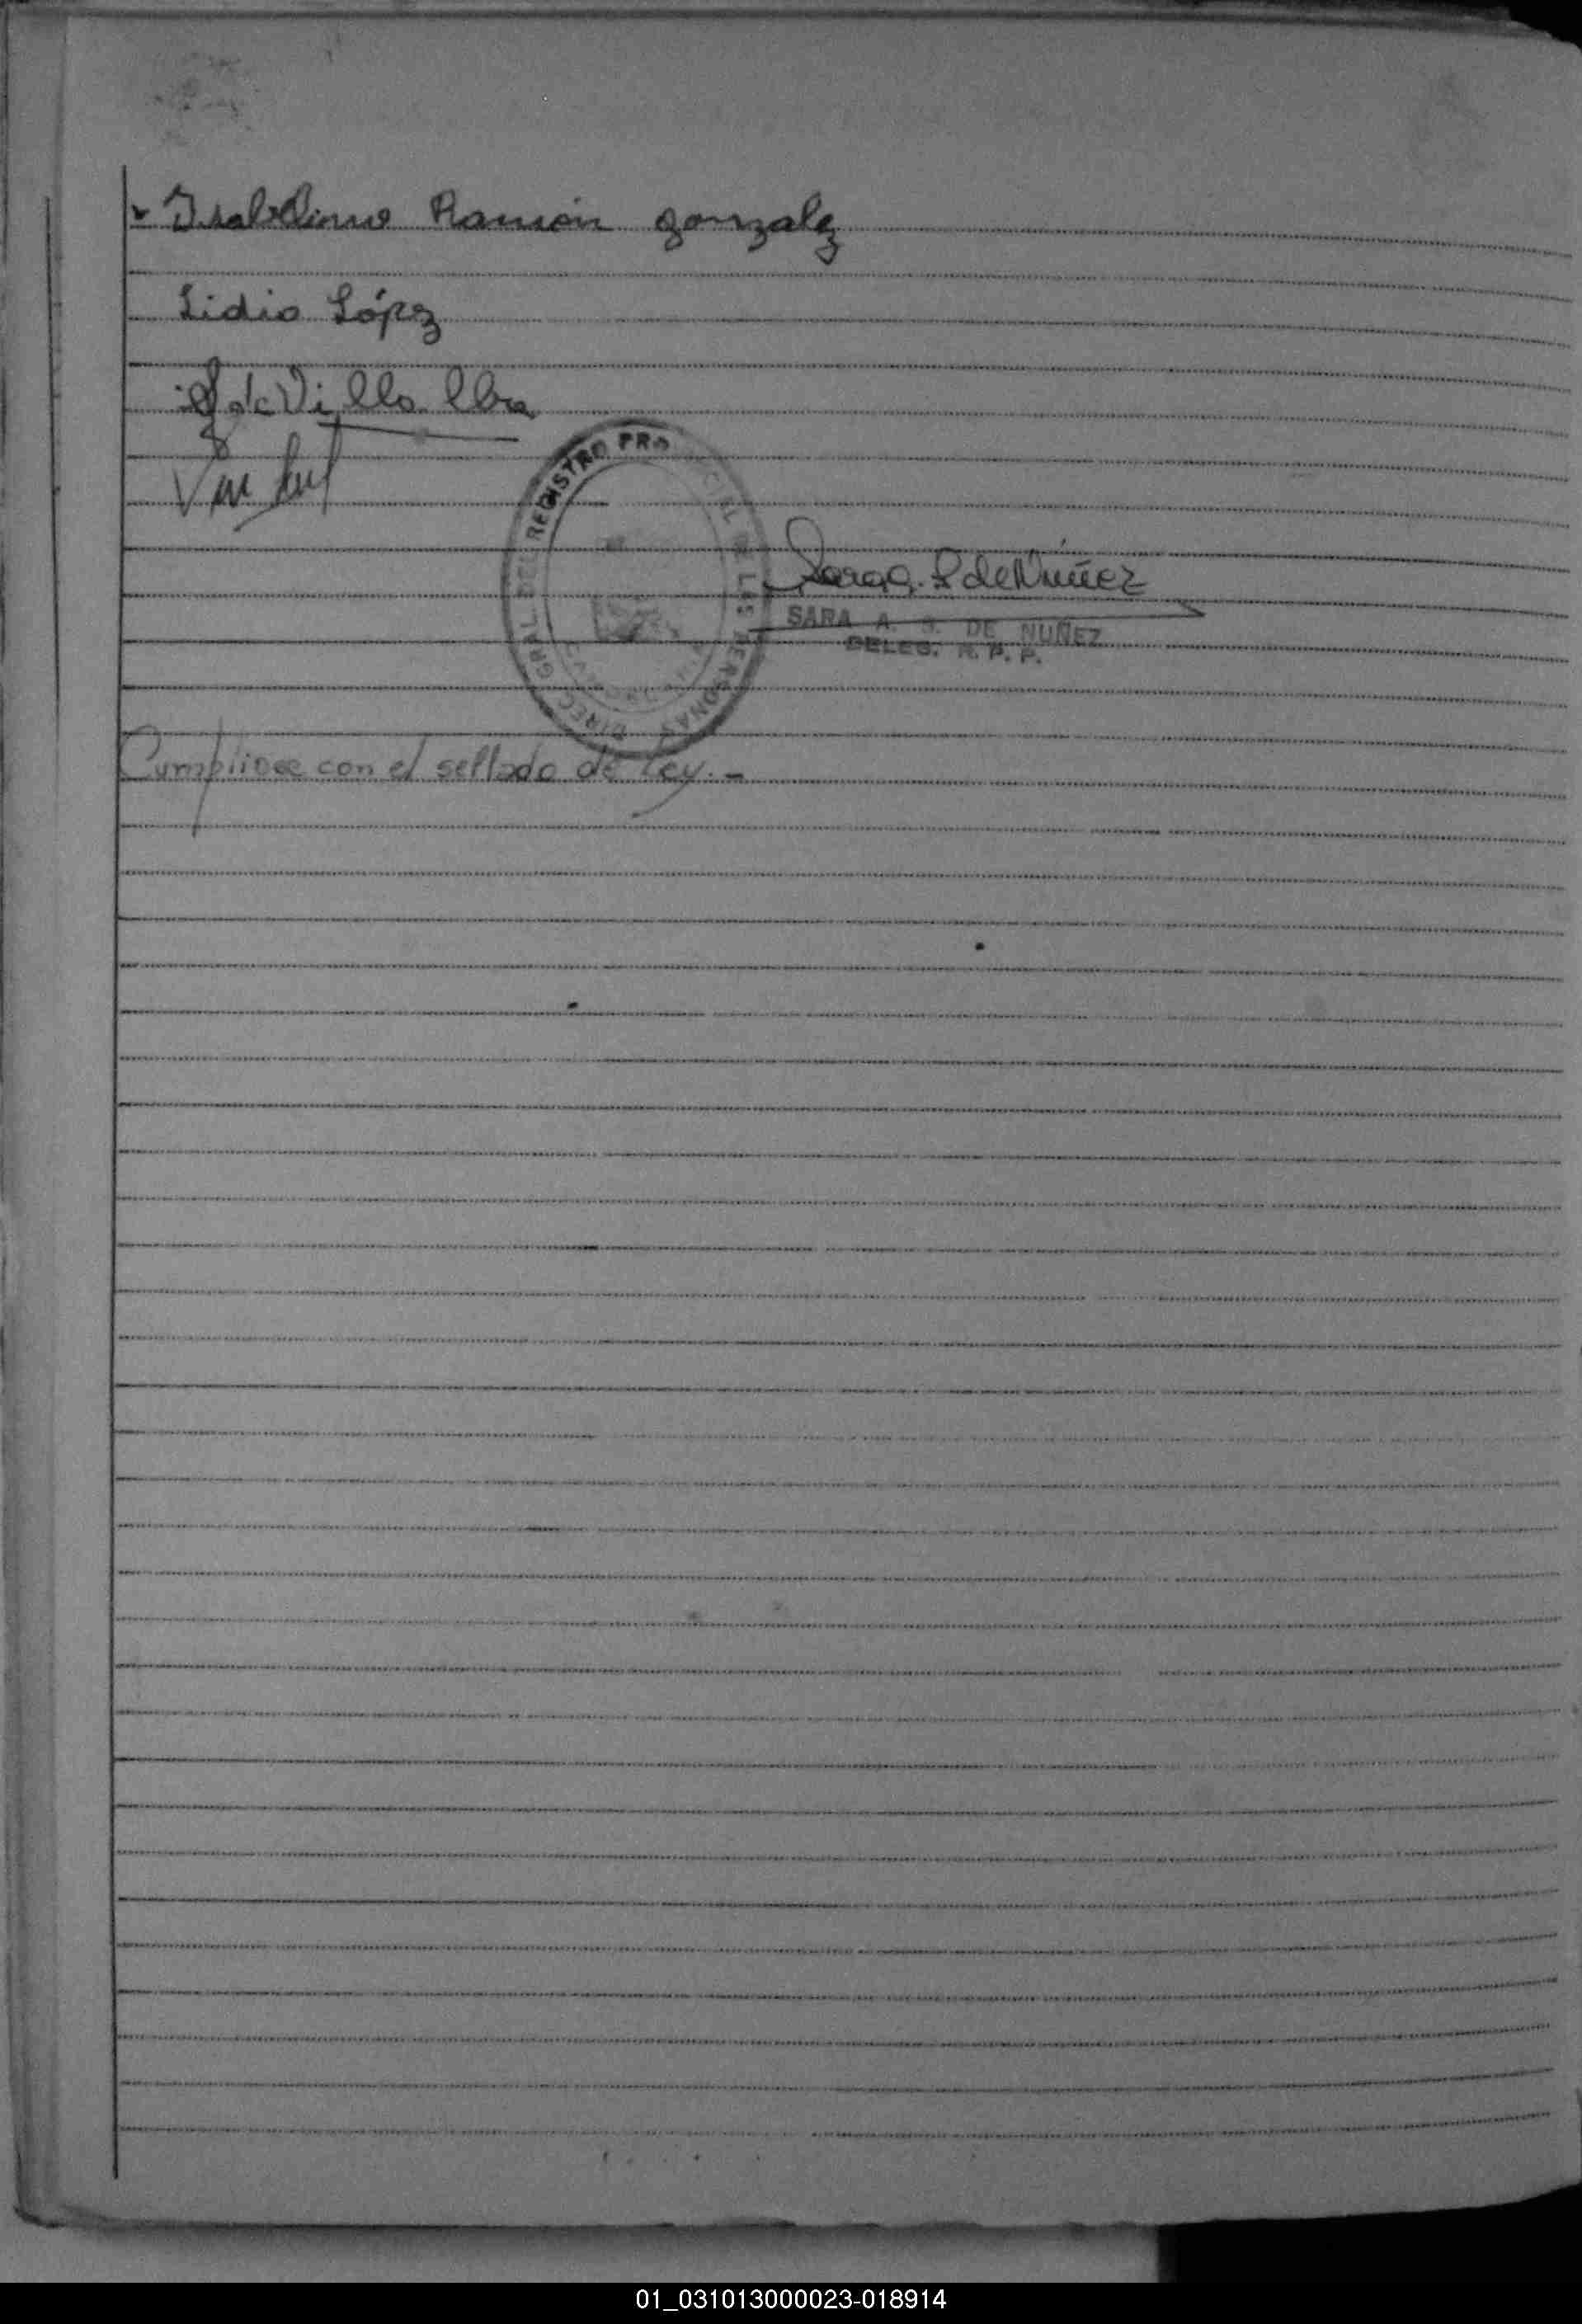 Isabelino Ramón Gonzalez
Lidio López
REGISTRO PRO CIEL LAS PERSONAS
DIREC GRAL. DEL
Sara A. S de Nuñez
SARA A. S. DE NUÑEZ
DELEG. R. P. P.
Cumplióse con el sellado de Ley.-
01_031013000023-018914